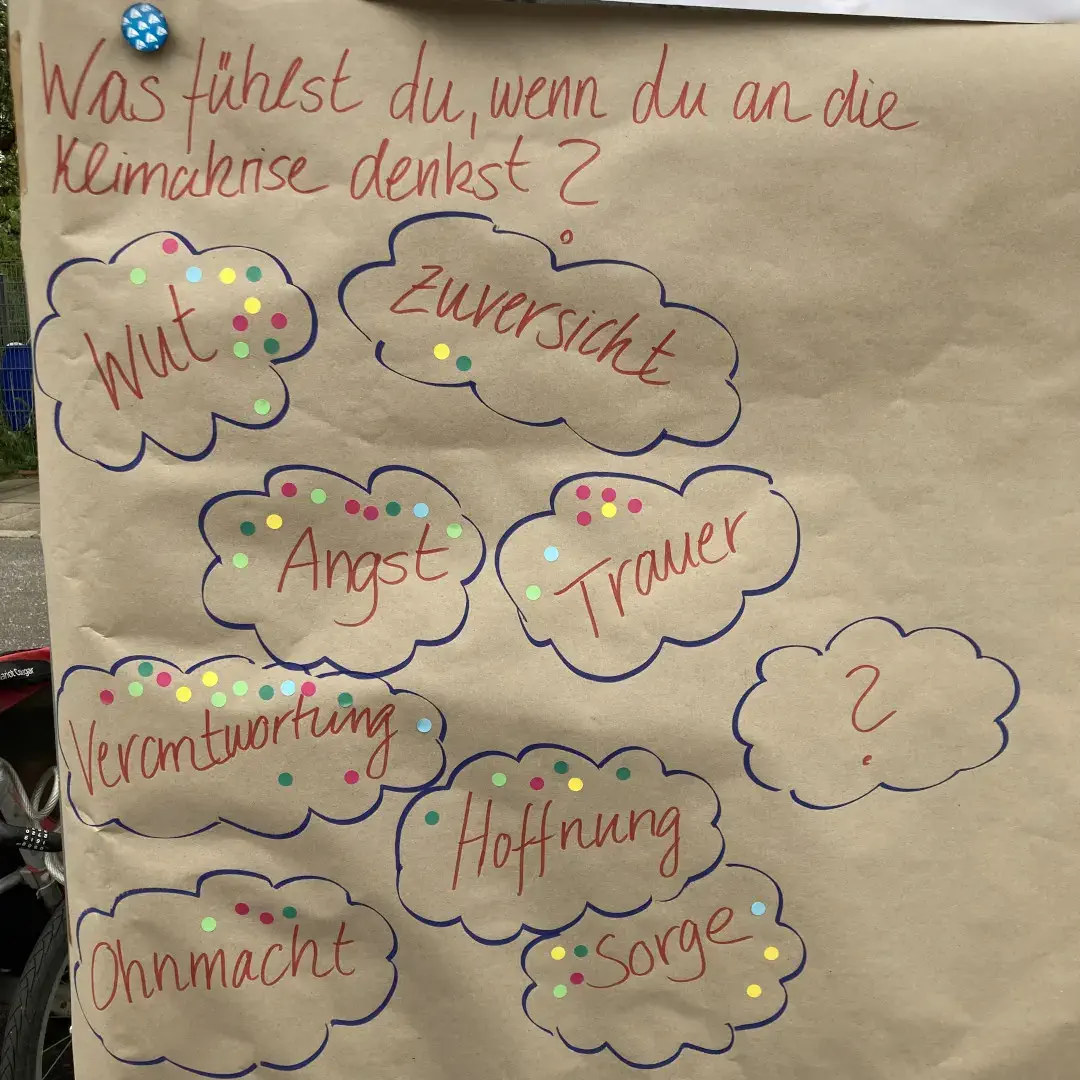 Was fühlst du, wenn du an die
Klimakrise denkst?
Wut
Zuversicht
Angst
Trauer
Verantwortung
?
Hoffnung
Ohnmacht
Sorge